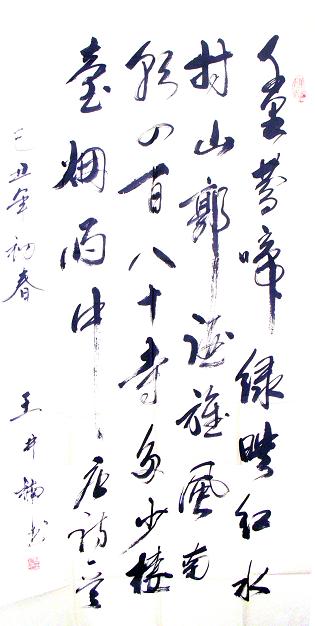 千里莺啼绿映红水
村山郭酒旗風南
朝四百八十寺多少楼
臺烟雨中唐诗一首
己丑年初春
王井楠书